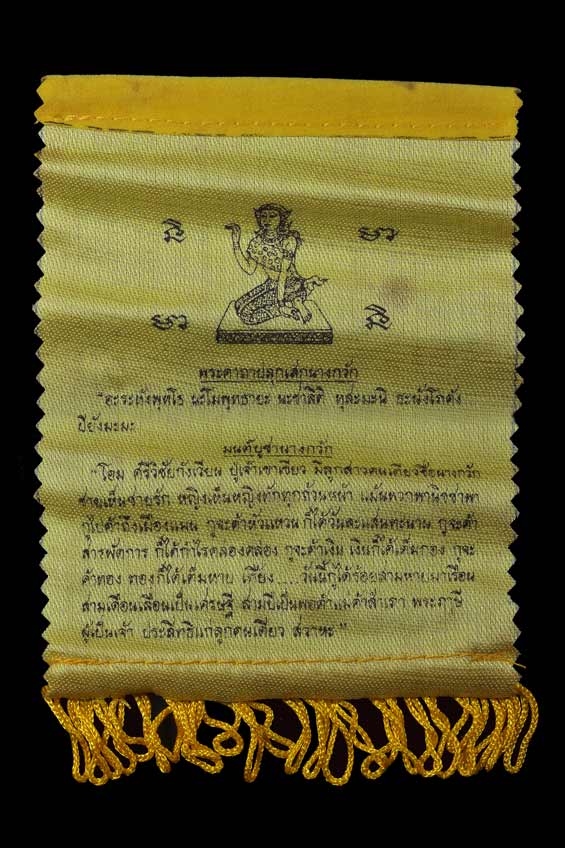 พระคาถาปลุกเสกนางกวัก
"อะระหังพุทโธ นะโมพุทธายะ นะชาลิติ
ปิยังมะมะ
มนต์บูชานางกวัก
"โอม ศรีวิชัยกังเวียน ปู่เจ้าเขาเขียว มีลูกสาวคนเดียวชื่อนางกวัก
ชายเห็นชายรัก หญิงเห็นหญิงทักทุกถ้วนหน้า แม้นพวกพานิชชาพา
กูไปค้าถึงเมืองแมน กูจะค้าหัวแหวน ก็ได้วันละแสนทะนาน กูจะค้า
สารพัดการ ก็ได้กำไรคล่องคล่อง กูจะค้าเงิน เงินก็ได้เต็มกอง กูจะ
ค้าทอง ทองก็ได้เต็มหาบ เพียง....วันนี้กูได้ร้อยสามหาบมาเรือน
สามเดือนเลื่อนเป็นเศรษฐี สามปีเป็นพ่อค้าแม่ค้าสำเภา พระภาษี
ผู้เป็นเจ้า ประสิทธิแก่ลูกคนเดียว สวาหะ"